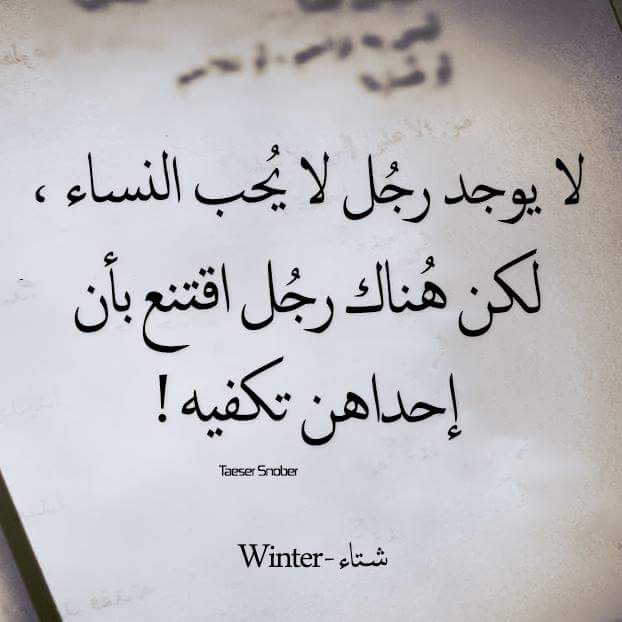 لا يوجد رجُل لا يُحب النساء ،
لكن هُناك رجُل اقتنع بأن
إحداهن تكفيه !
Taeser Snober
شتاء - Winter